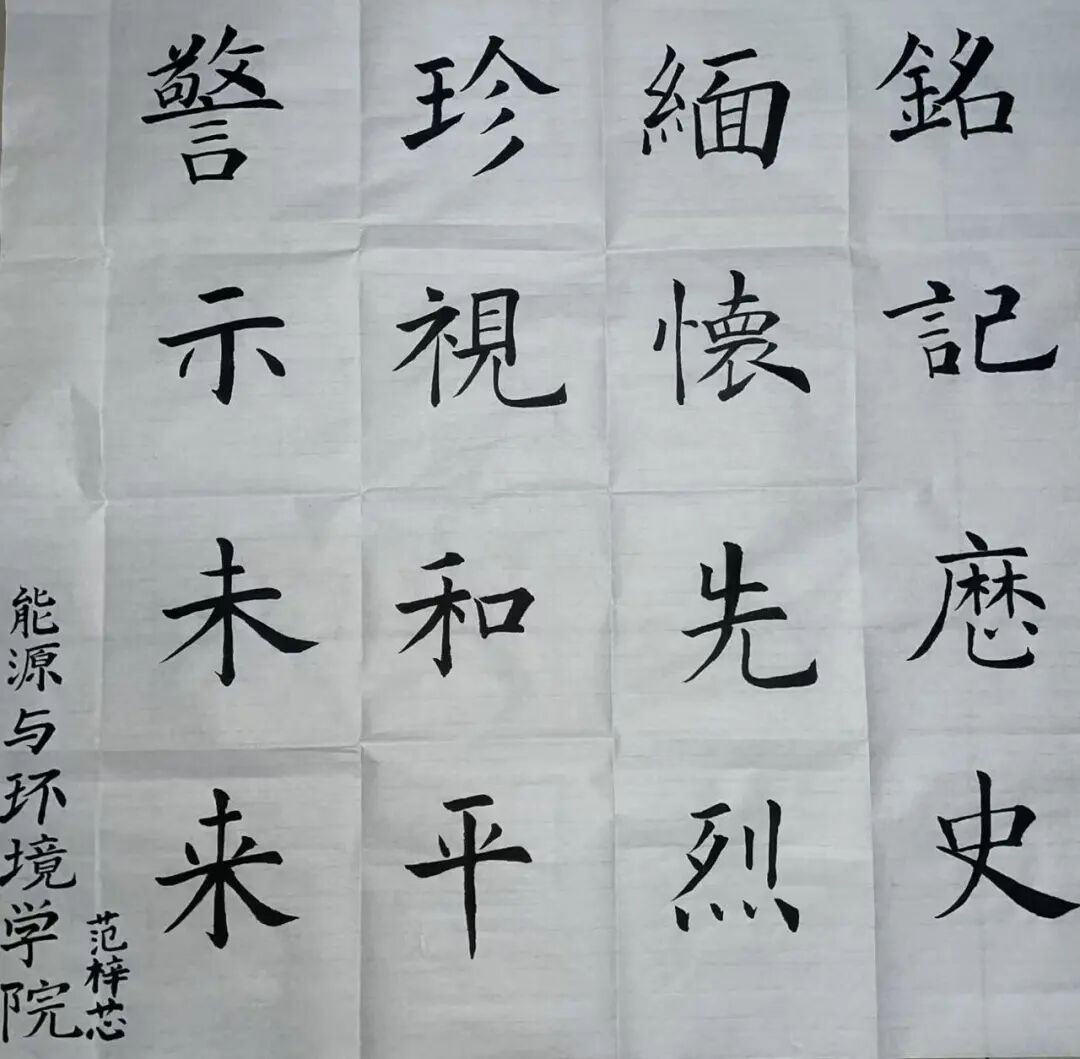 銘記歷史
緬懐先烈
珍視和平
警示未来
能源与环境学院
范梓芯